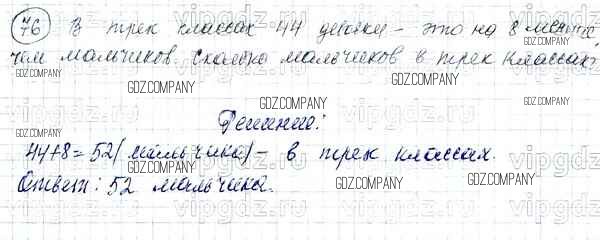 76 В трех классах 44 девочки - это на 8 меньше
чем мальчиков. Сколько мальчиков в трех классах?
Решение:
44+8=52(мальчика)- в трех классах.
Ответ: 52 мальчика.